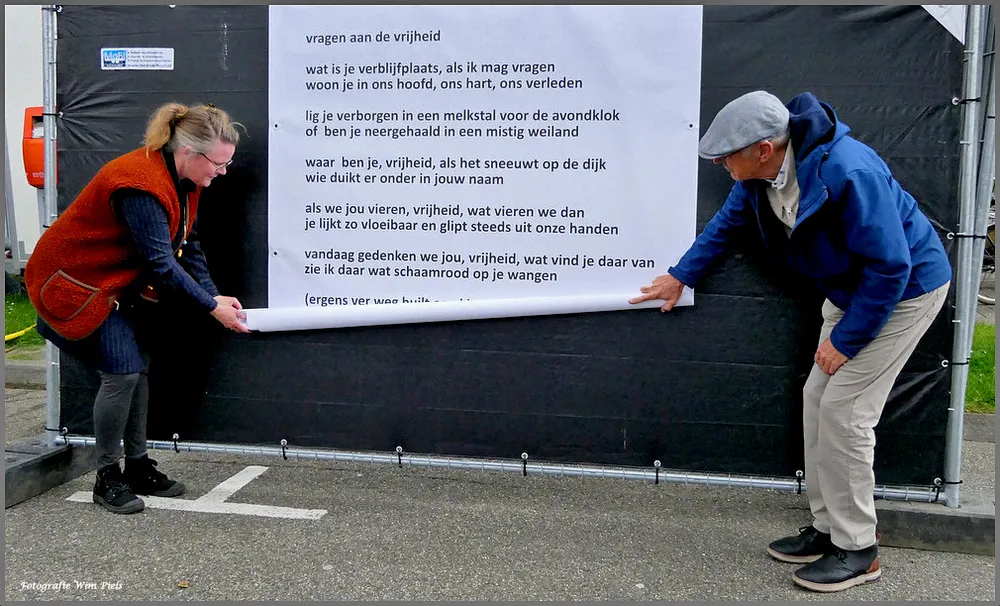 vragen aan de vrijheid
wat is je verblijfplaats, als ik mag vragen
woon je in ons hoofd, ons hart, ons verleden
lig je verborgen in een melkstal voor de avondklok
of ben je neergehaald in een mistig weiland
waar ben je, vrijheid, als het sneeuwt op de dijk
wie duikt er onder in jouw naam
als we jou vieren, vrijheid, wat vieren we dan
je lijkt zo vloeibaar en glipt steeds uit onze handen
vandaag gedenken we jou, vrijheid, wat vind je daar van
zie ik daar wat schaamrood op je wangen
(ergens ver weg huilt
Fotografie Wim Piels